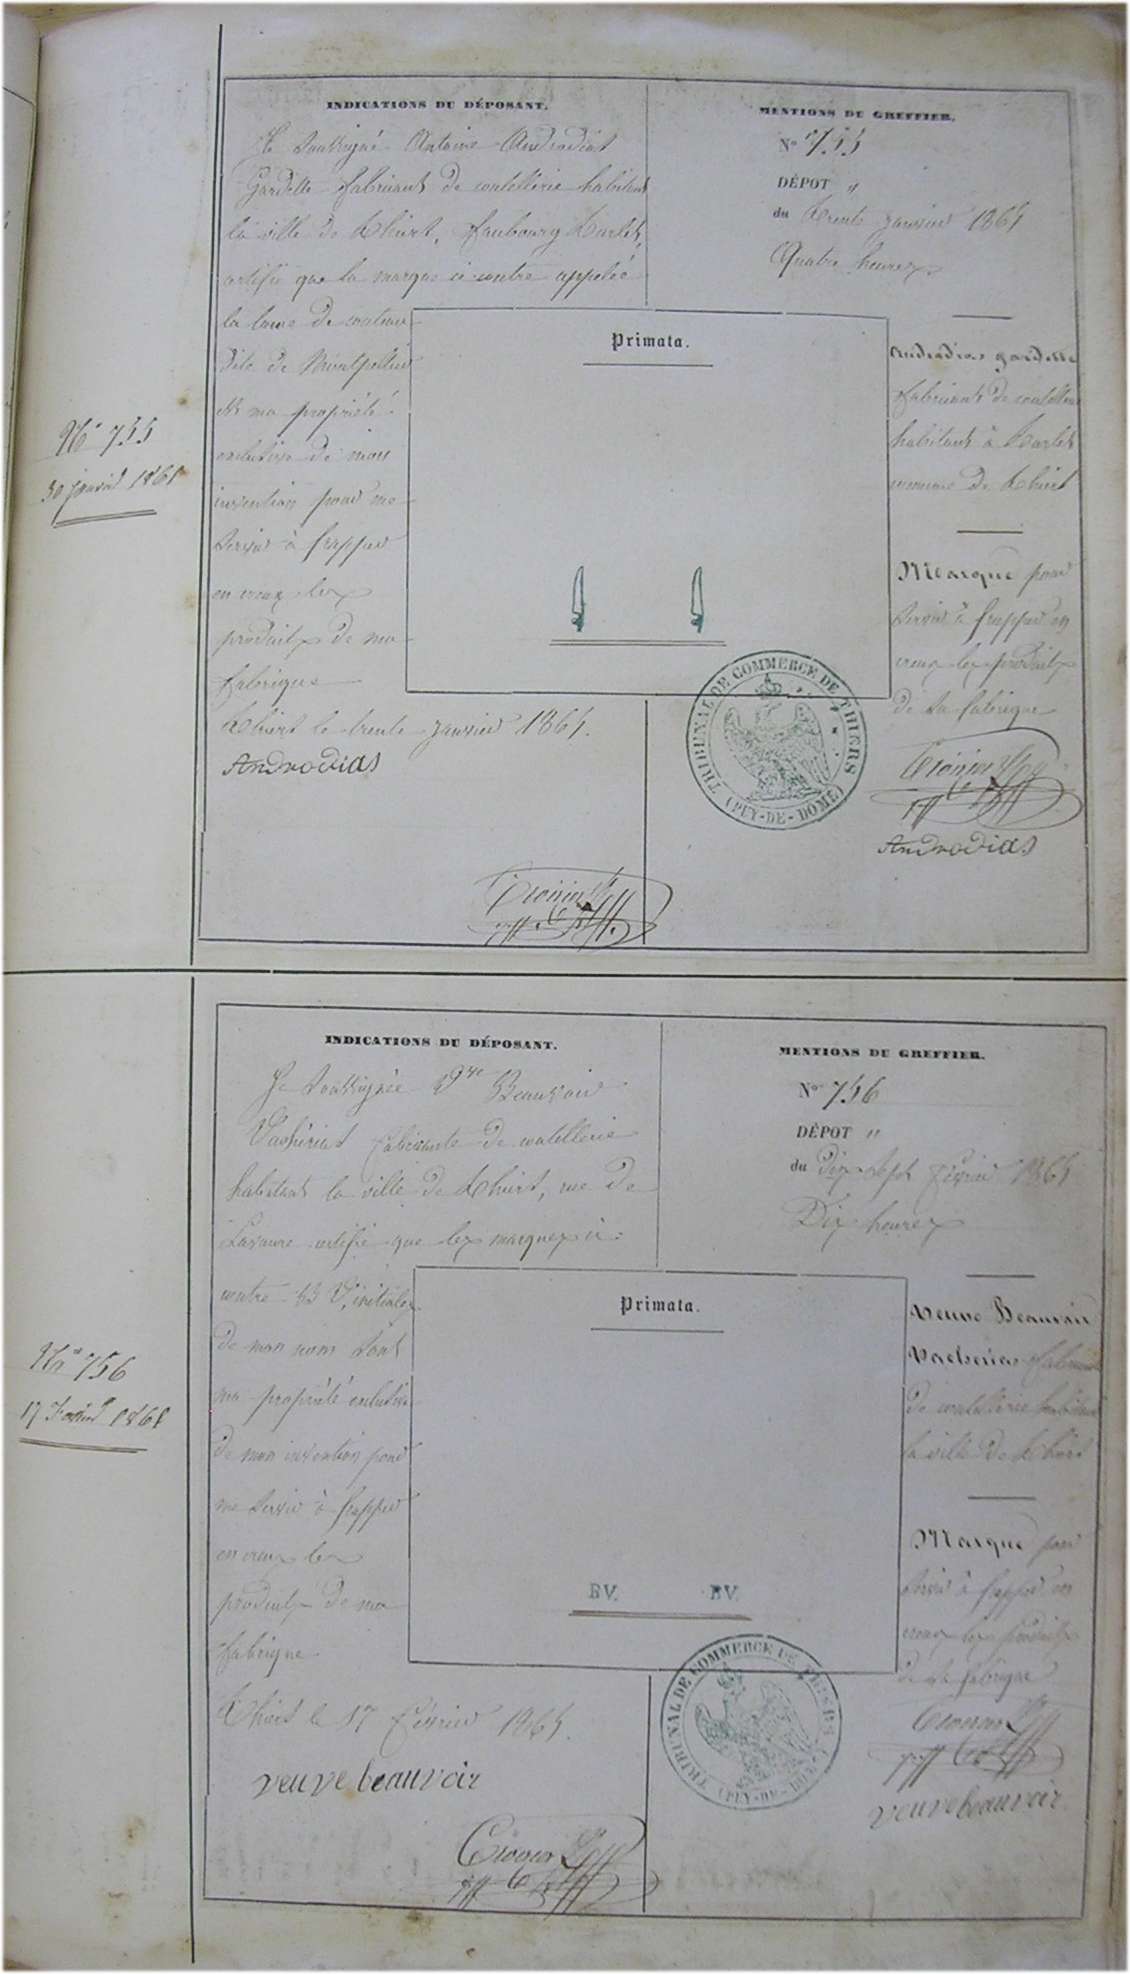 Nº 755
30 janvier 1861
INDICATIONS DU DÉPOSANT.
Je soussigné Antoine Androdias
Gardelle fabricant de coutellerie habitant
la ville de Thiers, faubourg
certifie que la marque ci contre appelée
la lame de couteau
dite de Montpellier
est ma propriété
exclusive de mon
invention pour me
servir à frapper
en creux les
produits de ma
fabrique
Thiers le trente janvier 1861.
Androdias
MENTIONS DU GREFFIER.
Nº 755
DÉPOT "
du trente janvier 1861
Quatre heures
Primata.
Androdias gardelle
fabricant de coutellerie
habitant à
commune de Thiers
Marque pour
servir à frapper en
creux les produits
de sa fabrique
Androdias
TRIBUNAL DE COMMERCE DE THIERS
(PUY-DE-DOME)
Nº 756
17 Février 1861
INDICATIONS DU DÉPOSANT.
Je soussignée Vve Beauvoir
Vacherias fabricante de coutellerie
habitant la ville de Thiers, rue de
certifie que les marques ci
contre B V, initiales
de mon nom sont
ma propriété exclusive
de mon invention pour
me servir à frapper
en creux les
produits de ma
fabrique
Thiers le 17 Février 1861.
veuve beauvoir
MENTIONS DU GREFFIER.
Nº 756
DÉPOT "
du Dix-sept février 1861
Dix heures
Primata.
BV. BV.
Veuve Beauvoir
Vacherias fabricante
de coutellerie habitant
la ville de Thiers
Marque pour
servir à frapper en
creux les produits
de sa fabrique
veuve beauvoir
TRIBUNAL DE COMMERCE DE THIERS
(PUY-DE-DOME)